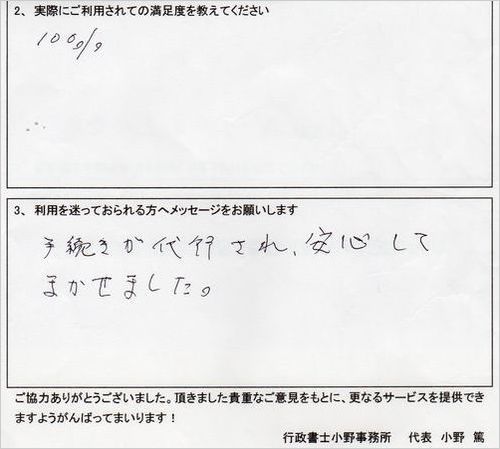 2、実際にご利用されての満足度を教えてください
100%
3、利用を迷っておられる方へメッセージをお願いします
手続きが代行され、安心して
まかせました。
ご協力ありがとうございました。頂きました貴重なご意見をもとに、更なるサービスを提供でき
ますようがんばってまいります!
行政書士小野事務所 代表 小野 篤